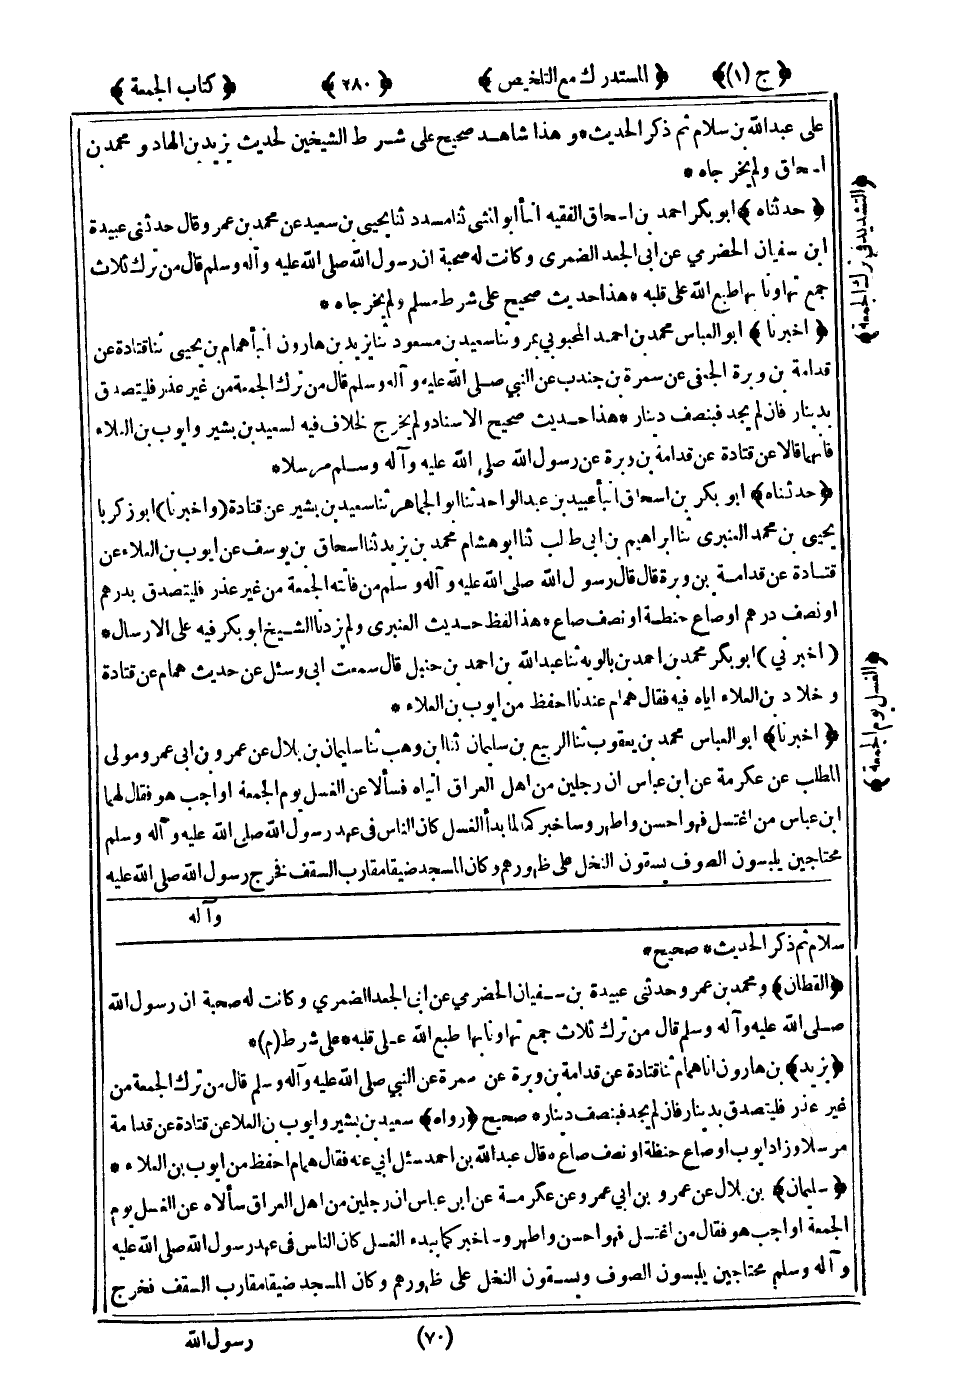 ﴿ ج (١) ﴾ ﴿ المستدرك مع التلخيص ﴾ ﴿ ٢٨٠ ﴾ ﴿ كتاب الجمعة ﴾
على عبد الله بن سلام ثم ذكر الحديث * و هذا شاهد صحيح على شرط الشيخين لحديث يزيد بن الهاد و محمد بن
اسحاق ولم يخرجاه *
﴿ حدثناه ﴾ ابو بكر احمد بن اسحاق الفقيه انبأ ابو المثنى ثنا مسدد ثنا يحيى بن سعيد عن محمد بن عمر وقال حدثنى عبيدة
ابن سفيان الحضرمي عن ابى الجعد الضمرى وكانت له صحبة ان رسول الله صلى الله عليه وآله وسلم قال من ترك ثلاث
جمع تهاونا بها طبع الله على قلبه * هذا حديث صحيح على شرط مسلم ولم يخرجاه *
﴿ اخبرنا ﴾ ابو العباس محمد بن احمد المحبوبي بمرو ثنا سعيد بن مسعود ثنا يزيد بن هارون انبأ همام بن يحيى ثنا قتادة عن
قدامة بن وبرة الجعفى عن سمرة بن جندب عن النبي صلى الله عليه وآله وسلم قال من ترك الجمعة من غير عذر فليتصدق
بدينار فان لم يجد فبنصف دينار * هذا حديث صحيح الاسناد ولم يخرج لخلاف فيه لسعيد بن بشير و ايوب بن العلاء
فانهما قالا عن قتادة عن قدامة بن وبرة عن رسول الله صلى الله عليه وآله وسلم مرسلا *
﴿ حدثناه ﴾ ابو بكر بن اسحاق انبأ عبيد بن عبد الواحد ثنا ابو الجماهر ثنا سعيد بن بشير عن قتادة (واخبرنا) ابو زكريا
يحيى بن محمد العنبرى ثنا ابراهيم بن ابى طالب ثنا ابو هشام محمد بن يزيد ثنا اسحاق بن يوسف عن ايوب بن العلاء عن
قتادة عن قدامة بن وبرة قال قال رسول الله صلى الله عليه وآله وسلم من فاتته الجمعة من غير عذر فليتصدق بدرهم
او نصف درهم او صاع حنطة او نصف صاع * هذا لفظ حديث العنبرى ولم يزدنا الشيخ ابو بكر فيه على الارسال *
( اخبرني ) ابو بكر محمد بن احمد بن بالويه ثنا عبد الله بن احمد بن حنبل قال سمعت ابى وسئل عن حديث همام عن قتادة
و خلاد بن العلاء اياه فيه فقال همام عندنا احفظ من ايوب بن العلاء *
﴿ اخبرنا ﴾ ابو العباس محمد بن يعقوب ثنا الربيع بن سليمان ثنا ابن وهب ثنا سليمان بن بلال عن عمرو بن ابى عمرو مولى
المطلب عن عكرمة عن ابن عباس ان رجلين من اهل العراق اتياه فسألا عن الغسل يوم الجمعة اواجب هو فقال لهما
ابن عباس من اغتسل فهو احسن واطهر وساخبركم لما بدأ الغسل كان الناس فى عهد رسول الله صلى الله عليه وآله وسلم
محتاجين يلبسون الصوف يسقون النخل على ظهورهم وكان المسجد ضيقا مقارب السقف فخرج رسول الله صلى الله عليه
وآله
سلام ثم ذكر الحديث * صحيح *
﴿ القطان ﴾ و محمد بن عمر وحدثنى عبيدة بن سفيان الحضرمي عن ابى الجعد الضمري وكانت له صحبة ان رسول الله
صلى الله عليه وآله وسلم قال من ترك ثلاث جمع تهاونا بها طبع الله على قلبه * على شرط (م) *
﴿ يزيد ﴾ بن هارون انا همام ثنا قتادة عن قدامة بن وبرة عن سمرة عن النبي صلى الله عليه وآله وسلم قال من ترك الجمعة من
غير عذر فليتصدق بدينار فان لم يجد فبنصف دينار * صحيح ﴿ رواه ﴾ سعيد بن بشير و ايوب بن العلا عن قتادة عن قدامة
مرسلا وزاد ايوب او صاع حنطة او نصف صاع * قال عبد الله بن احمد سئل ابي عنه فقال همام احفظ من ايوب بن العلاء *
﴿ سليمان ﴾ بن بلال عن عمرو بن ابي عمرو عن عكرمة عن ابن عباس ان رجلين من اهل العراق سألاه عن الغسل يوم
الجمعة اواجب هو فقال من اغتسل فهو احسن واطهر وساخبركم بما بدء الغسل كان الناس فى عهد رسول الله صلى الله عليه
وآله وسلم محتاجين يلبسون الصوف ويسقون النخل على ظهورهم وكان المسجد ضيقا مقارب السقف فخرج
(٧٠) رسول الله
﴿ التشديد فى ترك الجمعة ﴾
﴿ الغسل يوم الجمعة ﴾